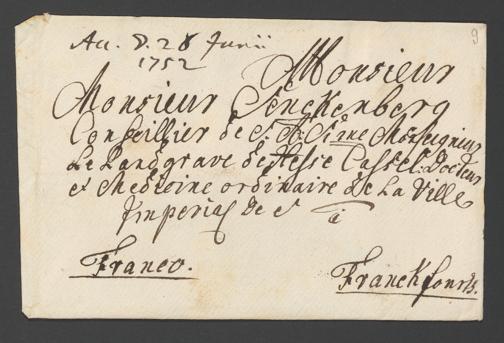 9
Au. d. 28 Junii
1752
Monsieur
Monsieur Senckenberg
Conseillier de S. A: S:me Monseigneur
Le Landgrave de Hesse Cassel. Docteur
et Medecine ordinaire de La Ville
Imperial de et
Franco.
Franckfourts.